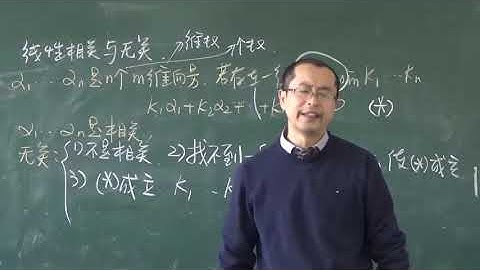 线性相关与无关 维数 个数
α₁ … αₙ是n个m维向量,若存在一 K₁ … Kₙ
K₁α₁+K₂α₂+ (*)
α₁ … αₙ是相关
无关:(1)不是相关 2)找不到一 使(*)成立
3) (*)成立 K₁